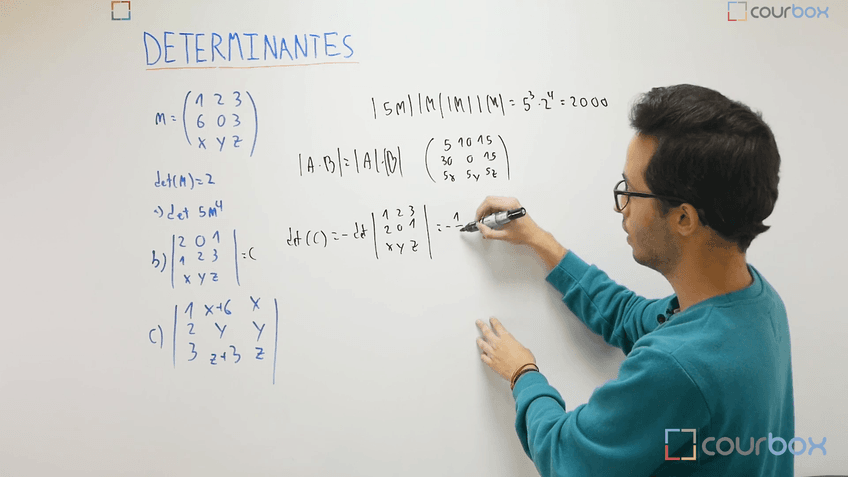 courbox
DETERMINANTES
M = ( 1 2 3
6 0 3
x y z )
det(M)=2
a) det 5M⁴
b) | 2 0 1
1 2 3
x y z | = C
c) | 1 x+6 x
2 y y
3 z+3 z |
|5M| |M| |M| |M| = 5³·2⁴ = 2000
|A·B| = |A|·|B|
( 5 10 15
30 0 15
5x 5y 5z )
det (C) = - det | 1 2 3
2 0 1
x y z | = - 1
courbox